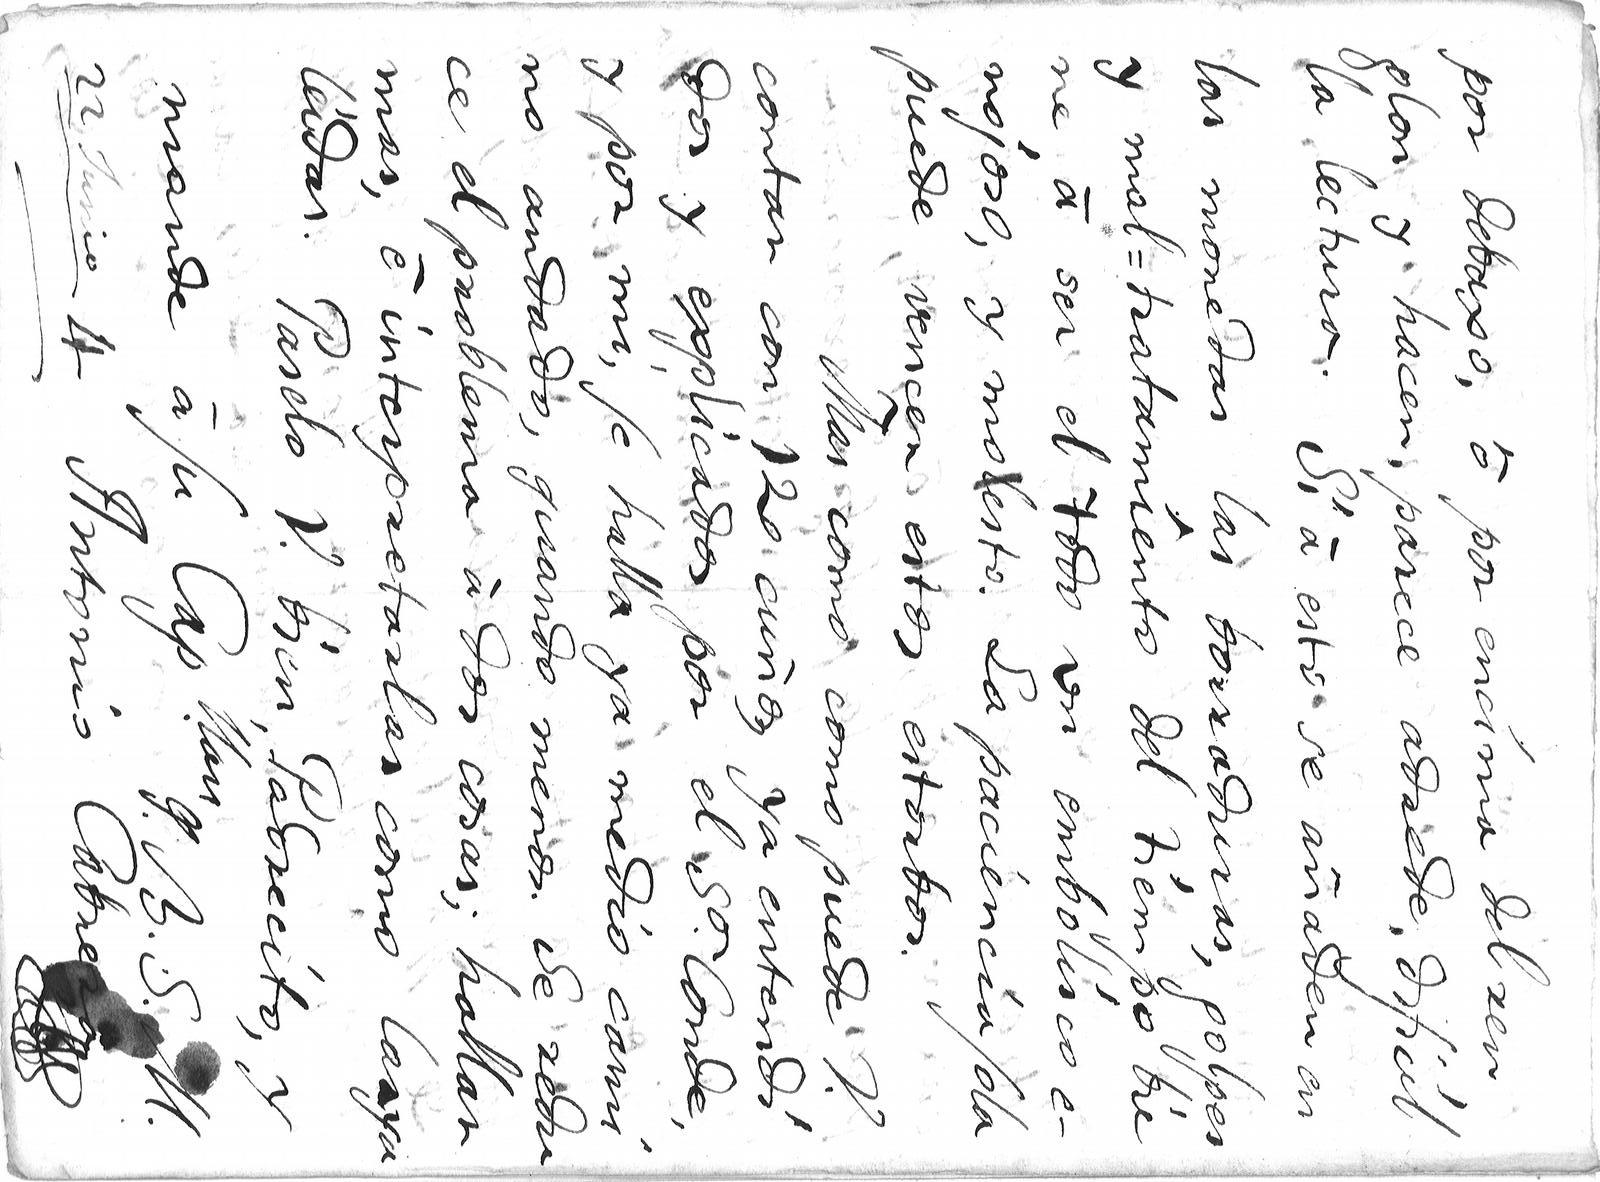 por debaxo, ò por encima del ren
glon y hacen, parece adrede, dificil
la lectura. Si à esto se añaden en
las monedas las borraduras, golpes
y mal=tratamiento del tiempo vie
ne à ser el todo un embolisco e-
nojoso, y molesto. La paciencia sola
puede vencer estos estorbos.
Mas como como puede V.
contar con 120 cuños ya entendi
dos y explicados por el Sor. Conde,
y por mi, se halla ya medio cami
no andado, quando menos. Se redu
ce el problema à dos cosas; hallar
mas, è interpretarlas como las ya
leidas. Paselo V. bien, Pabrecito, y
mande à su Cap. Mayr q. B. S. M.
22 Junio 4 Antonio Cabrera